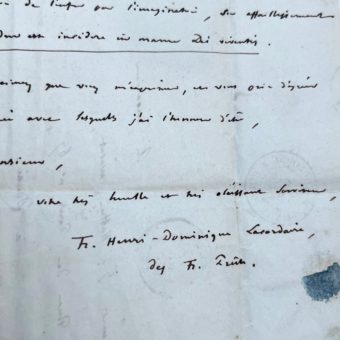 de l'enfer par l'imagination, son affaiblissement
est incidere in manus Dei viventis.
que vous m'exprimez, et vous prie d'agréer
avec lesquels j'ai l'honneur d'être,
Monsieur,
votre très humble et très obéissant serviteur,
fr. Henri-Dominique Lacordaire,
des fr. Prêch.